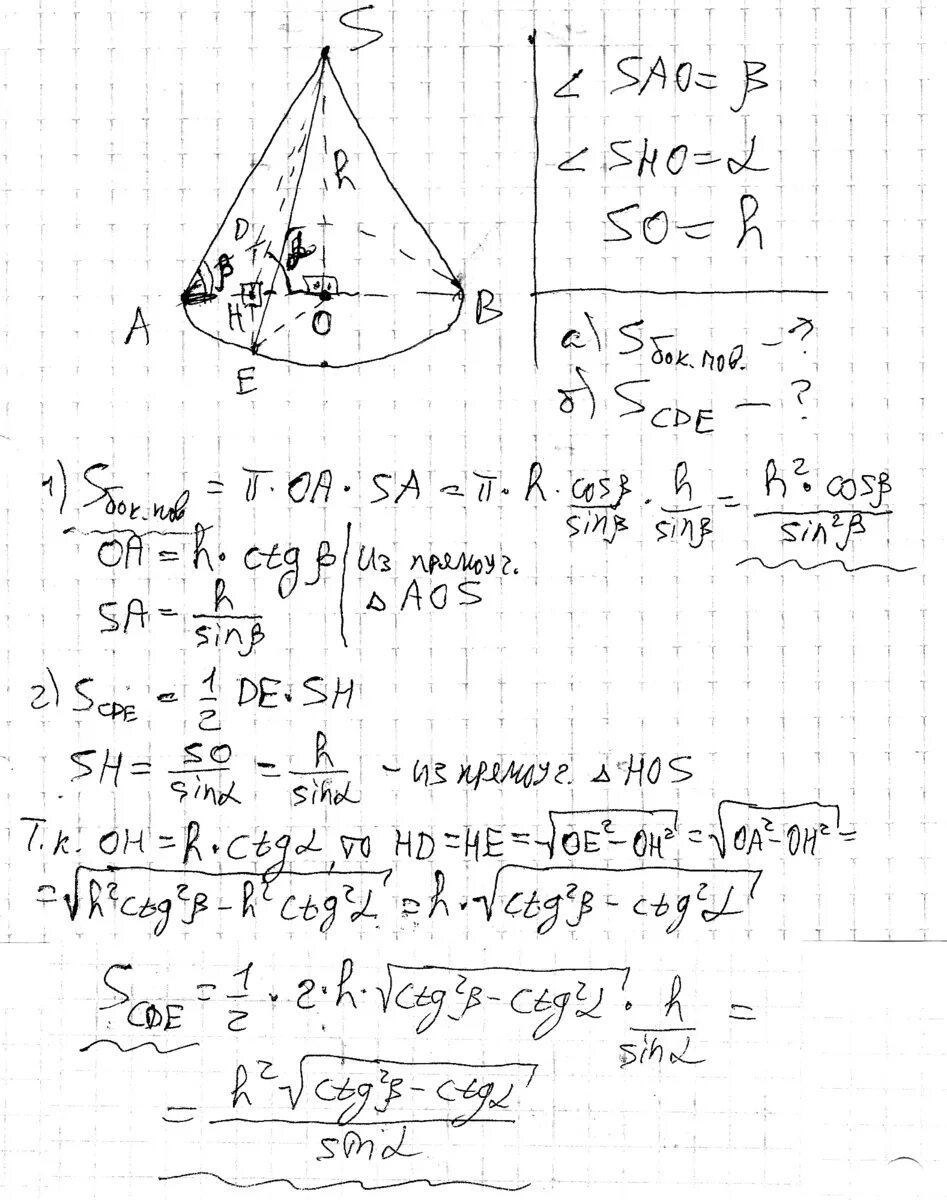 S
h
D
β
A
H
O
B
E
∠ SAO = β
∠ SHO = α
SO = h
а) S бок.пов. – ?
б) S CDE – ?
1) S бок.пов = π · OA · SA = π · h · cosβ/sinβ · h/sinβ = h² · cosβ / sin²β
OA = h · ctg β | из прямоуг.
SA = h/sinβ | Δ AOS
2) S CDE = 1/2 DE · SH
SH = SO/sinα = h/sinα – из прямоуг. Δ HOS
Т.к. OH = h · ctgα, то HD = HE = √(OE² – OH²) = √(OA² – OH²) =
= √(h² ctg²β – h² ctg²α) = h · √(ctg²β – ctg²α)
S CDE = 1/2 · 2 · h · √(ctg²β – ctg²α) · h/sinα =
= h² √(ctg²β – ctgα) / sinα